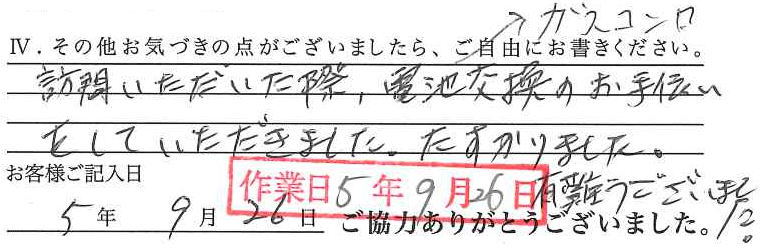 ガスコンロ
Ⅳ．その他お気づきの点がございましたら、ご自由にお書きください。
訪問いただいた際，電池交換のお手伝い
をしていただきました。たすかりました。
有難うございました。
お客様ご記入日
作業日5年9月26日
5年 9月 26日 ご協力ありがとうございました。